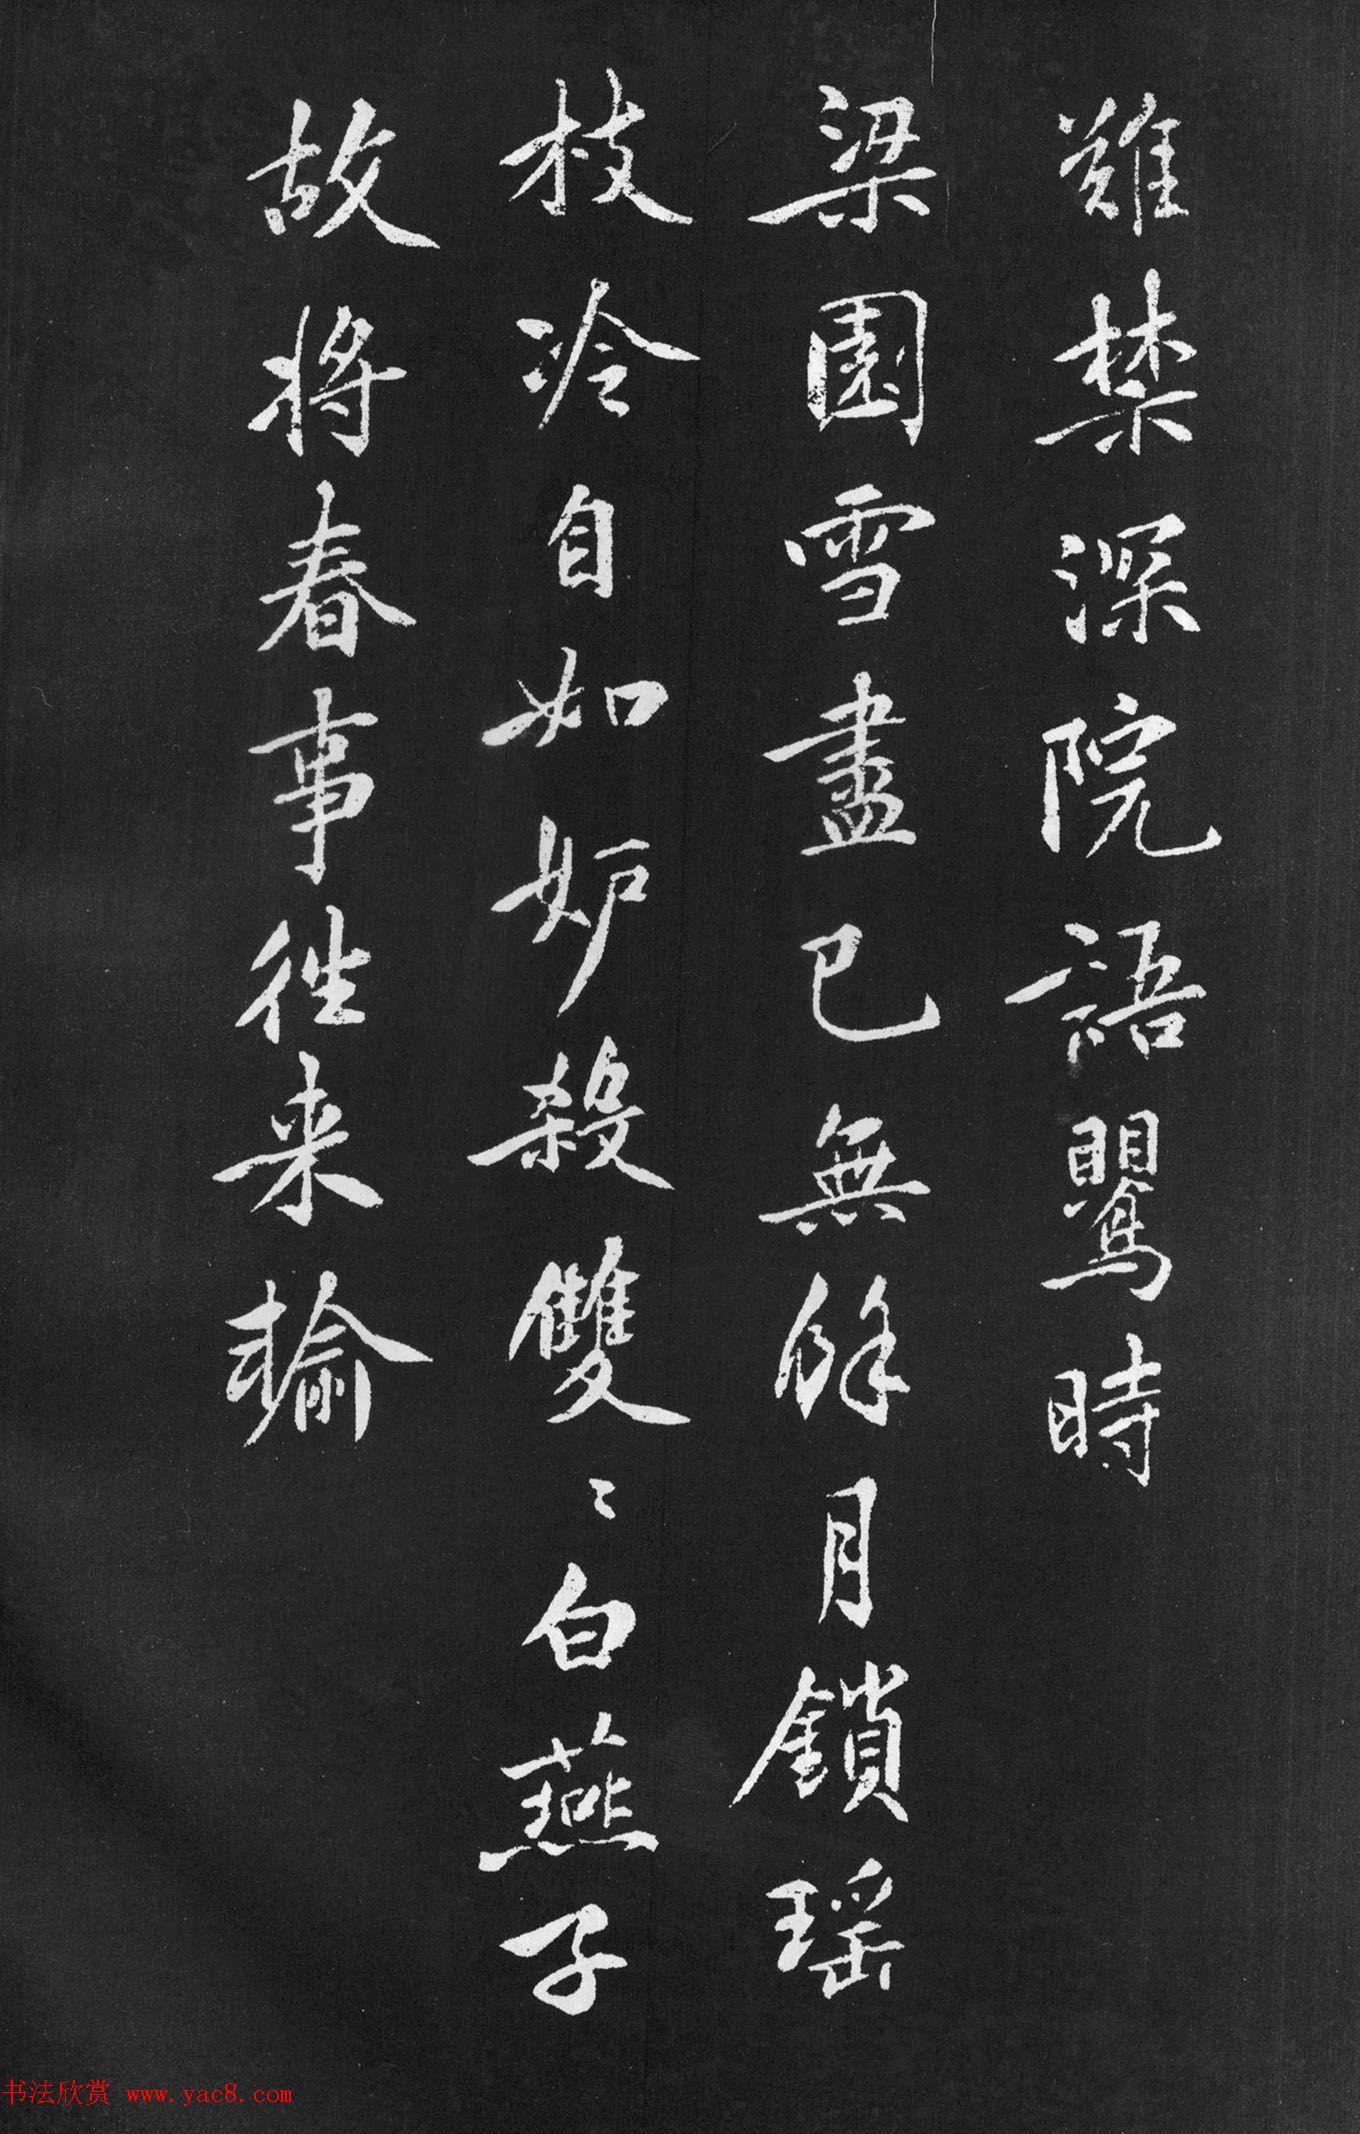 難禁深院語鸎時
梁園雪盡已無餘月鎖瑶
枝冷自如妒殺雙〻白燕子
故將春事徃来輸
书法欣赏 www.yac8.com